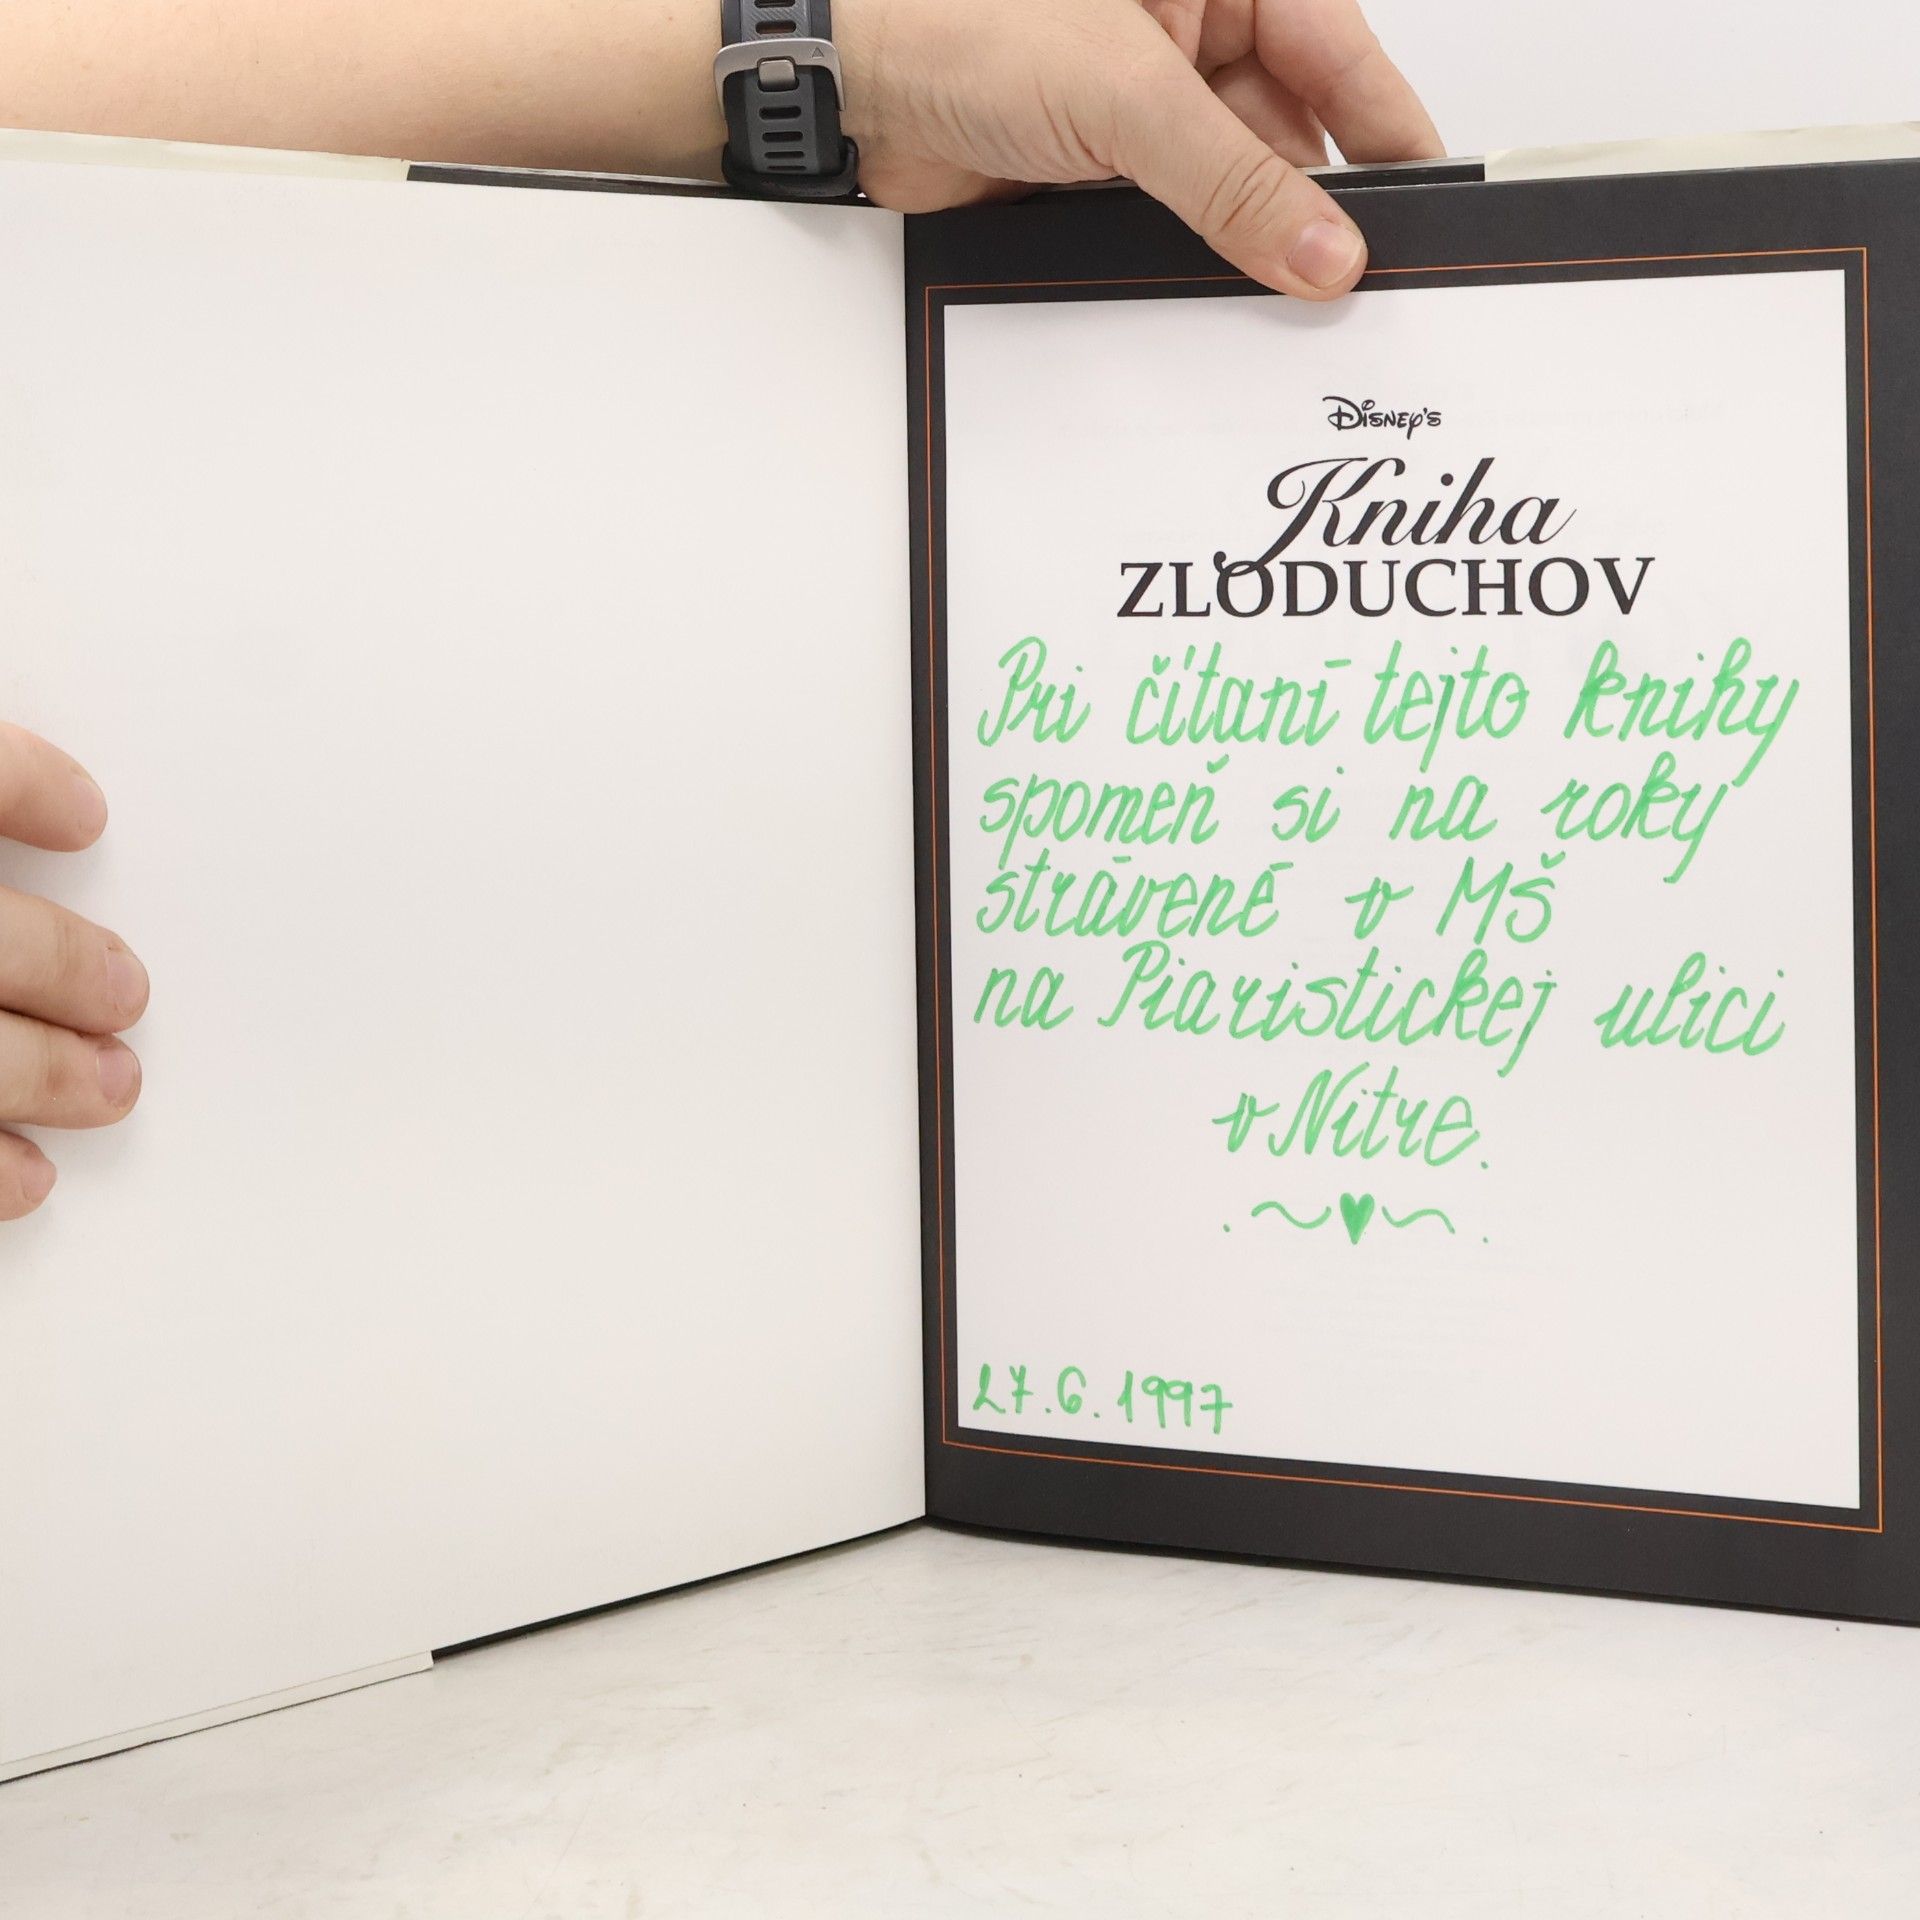 Disney's
Kniha
ZLODUCHOV
Pri čítaní tejto knihy
spomeň si na roky
strávené v MŠ
na Piaristickej ulici
v Nitre.
27.6.1997